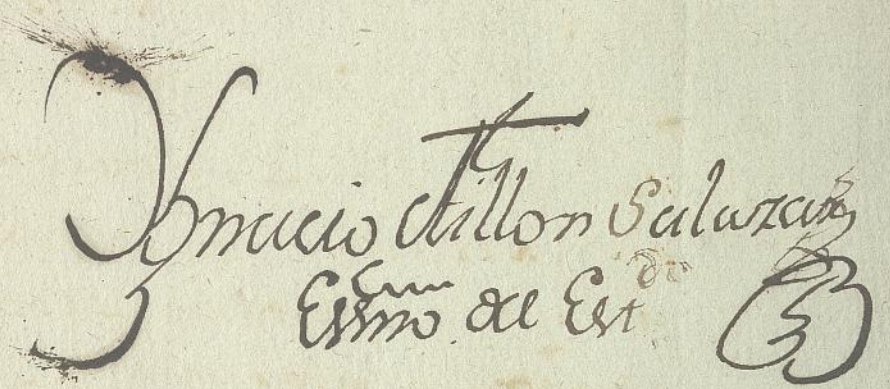 Ygnacio Aillon Salazar
Essno del Estdo